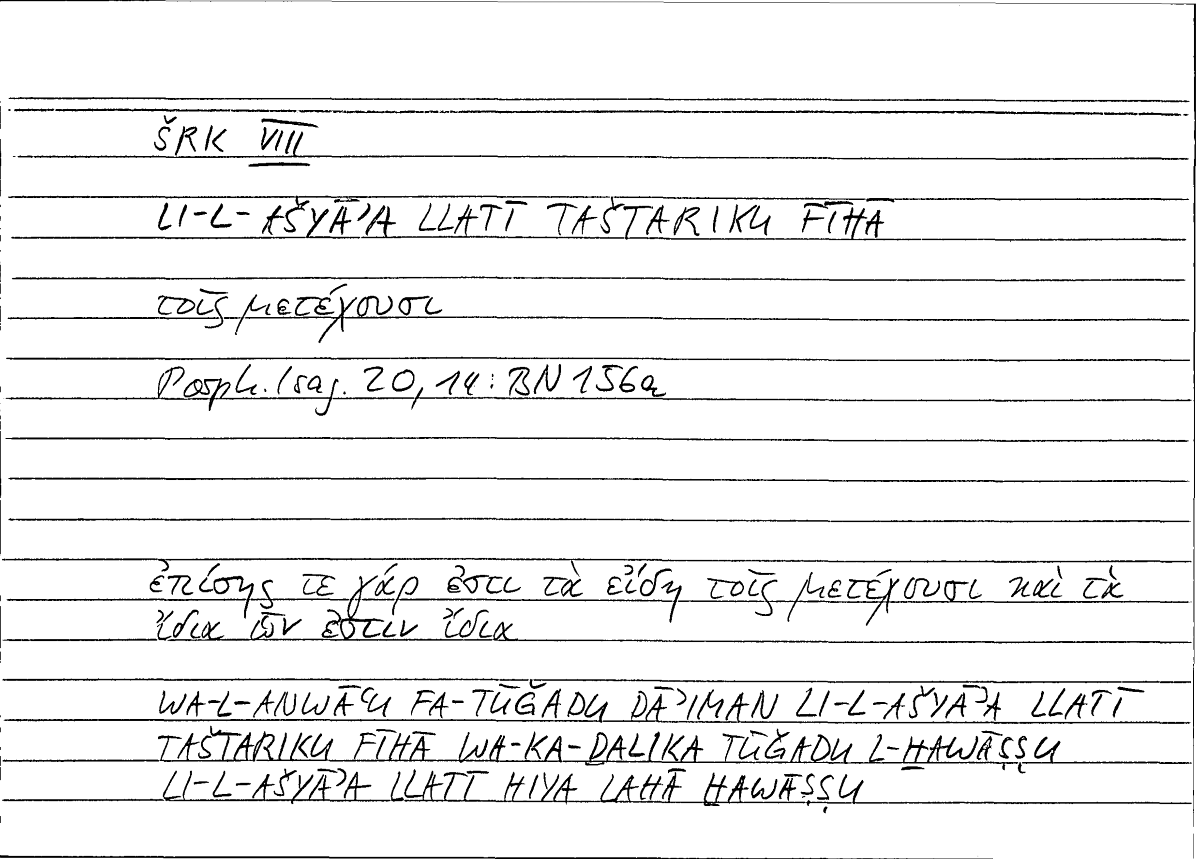 ŠRK VIII
LI-L-AŠYĀʾA LLATĪ TAŠTARIKU FĪHĀ
τοῖς μετέχουσι
Porph. Isag. 20, 14 : BN 156a
ἐπίσης τε γάρ ἐστι τὰ εἴδη τοῖς μετέχουσι καὶ τὰ
ἴδια ὧν ἐστιν ἴδια
WA-L-ANWĀʿU FA-TŪǦADU DĀʾIMAN LI-L-AŠYĀʾA LLATĪ
TAŠTARIKU FĪHĀ WA-KA-ḎALIKA TŪǦADU L-ḪAWĀṢṢU
LI-L-AŠYĀʾA LLATĪ HIYA LAHĀ ḪAWĀṢṢU